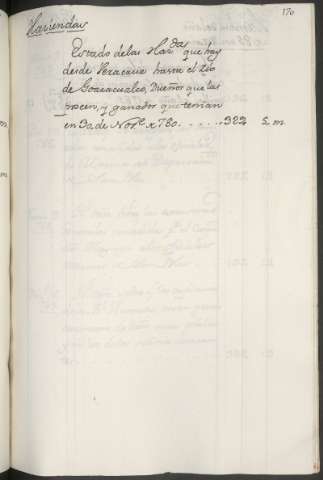 170
Haciendas
Estado de las Hac.das que hay
desde Veracruz hasta el Rio
de Goazacualco, Dueños que las
poseen, y ganados que tenian
en 30 de Nov.e de 780. . . . . . 382 S. m